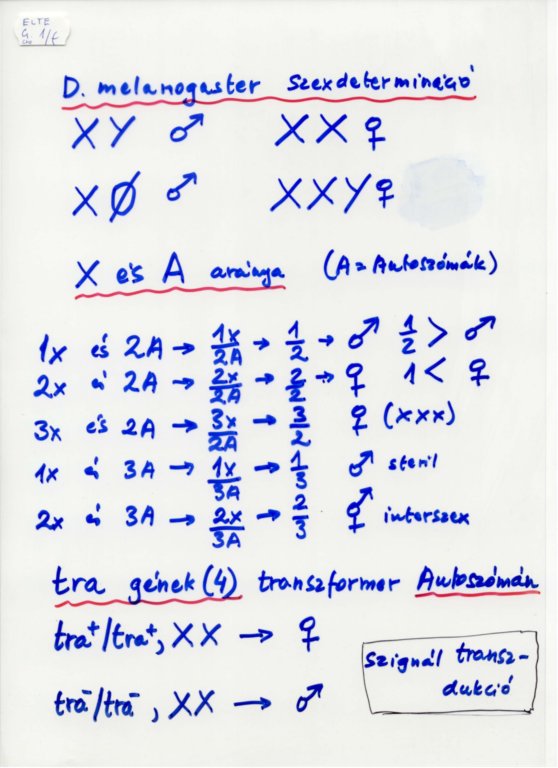 ELTE
G. 1/t
D. melanogaster Szexdetermináció
XY ♂ XX ♀
XØ ♂ XXY ♀
X és A aránya (A = Autoszómák)
1x és 2A → 1x/2A → 1/2 → ♂ 1/2 > ♂
2x és 2A → 2x/2A → 2/2 → ♀ 1 < ♀
3x és 2A → 3x/2A → 3/2 ♀ (xxx)
1x és 3A → 1x/3A → 1/3 ♂ steril
2x és 3A → 2x/3A → 2/3 ⚥ interszex
tra gének (4) transzformer Autoszómán
tra⁺/tra⁺, XX → ♀
tra⁻/tra⁻, XX → ♂
Szignál transz-
dukció